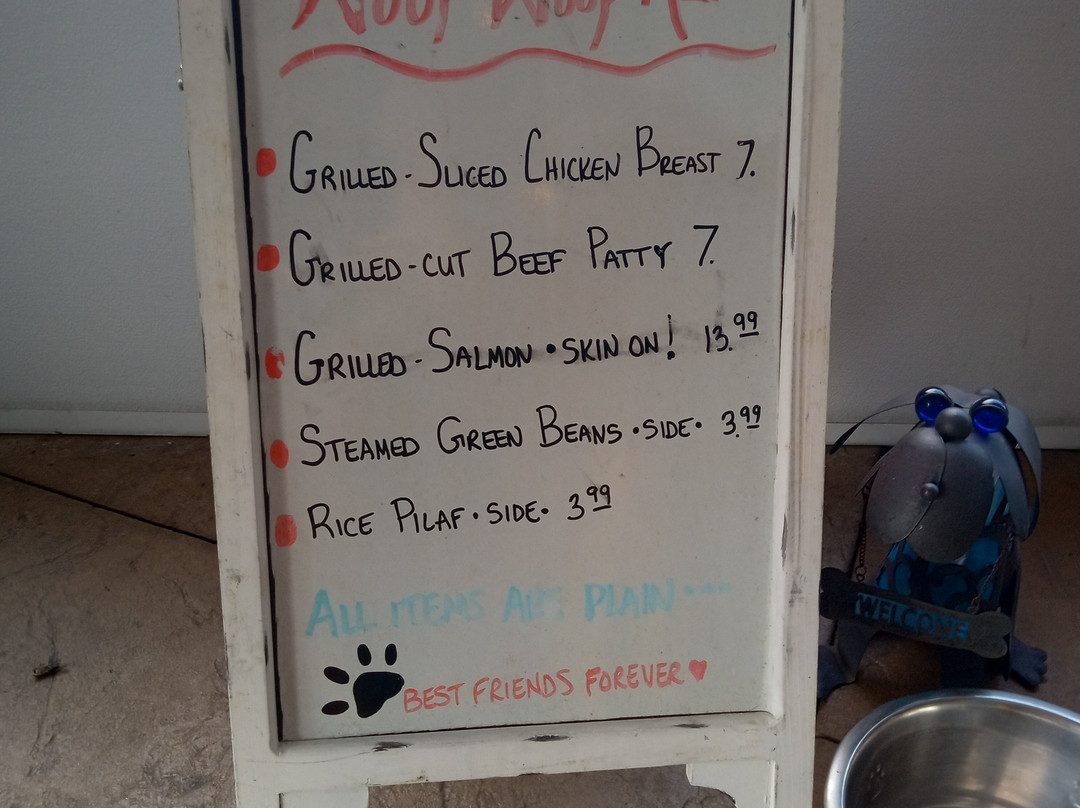 Woof Woof
GRILLED-SLICED CHICKEN BREAST 7.
GRILLED-CUT BEEF PATTY 7.
GRILLED-SALMON • SKIN ON! 13.99
STEAMED GREEN BEANS • SIDE • 3.99
RICE PILAF • SIDE • 3.99
ALL ITEMS ARE PLAIN....
BEST FRIENDS FOREVER ♥
WELCOME